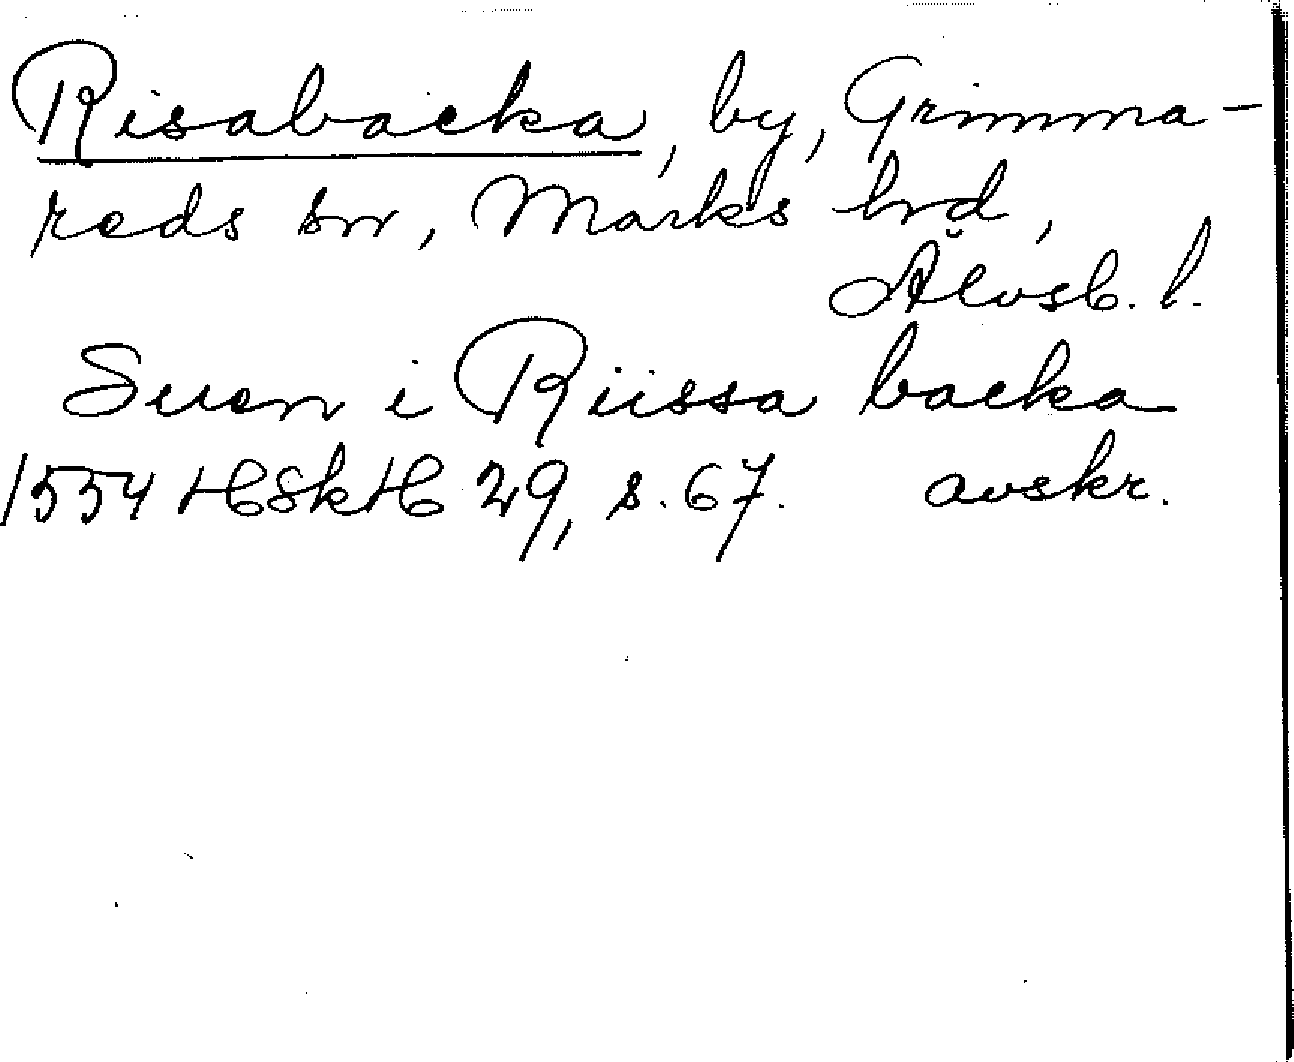 Risabacka, by, Grimma-
reds sn, Marks hrd,
Älvsb. l.
Suen i Riissa backa
1554 HSkH 29, s. 67. avskr.